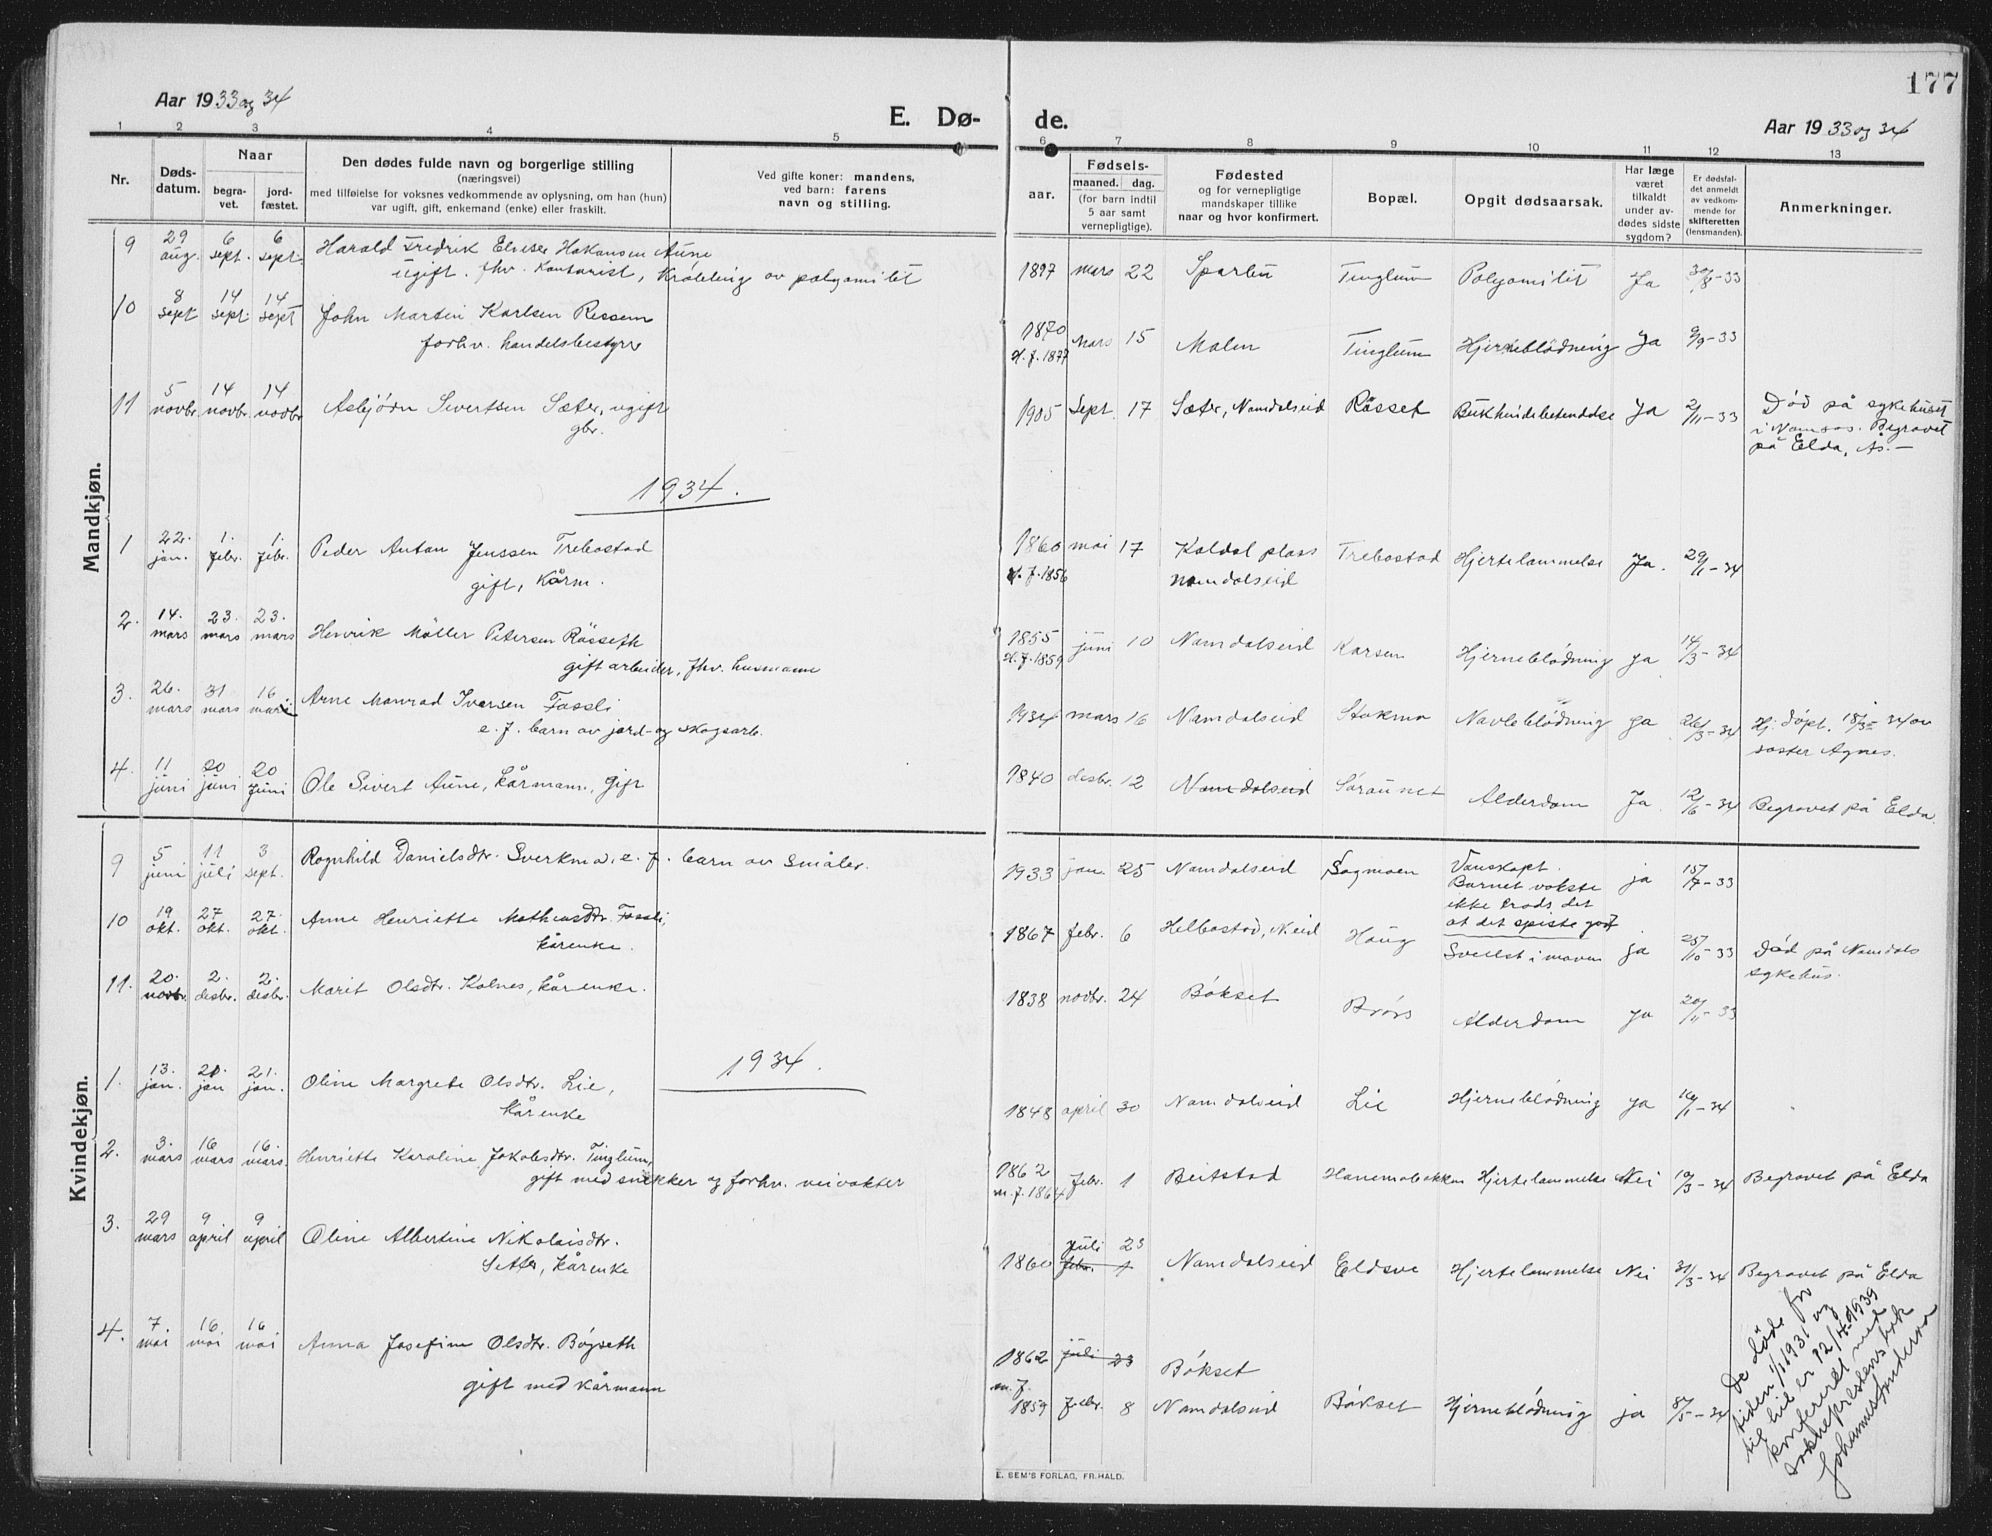 177
Aar 1933 og 34
E. Dø-
de.
Aar 1933 og 34
1 2 3 4 5 6 7 8 9 10 11 12 13
Nr.
Døds-
datum.
Naar
begra-
vet.
jord-
fæstet.
Den dødes fulde navn og borgerlige stilling
(næringsvei)
med tilføielse for voksnes vedkommende av oplysning, om han (hun)
var ugift, gift, enkemand (enke) eller fraskilt.
Ved gifte koner: mandens,
ved barn: farens
navn og stilling.
Fødsels-
aar.
maaned. dag.
(for barn indtil
5 aar samt
vernepligtige).
Fødested
og for vernepligtige
mandskaper tillike
naar og hvor konfirmert.
Bopæl.
Opgit dødsaarsak.
Har læge
været
tilkaldt
under av-
dødes sidste
sygdom?
Er dødsfal-
det anmeldt
av vedkom-
mende for
skifteretten
(lensmanden).
Anmerkninger.
Mandkjøn.
9 29 aug. 6 sept. 6 sept. Harald Fredrik Hakonsen Aune 1897 mars 22 Sparbu Tinglum Polyomilit Ja 30/8-33
ugift. fhv. kontorist, Krøbling av polyomilit
10 8 sept 14 sept. 14 sept John Martin Karlsen Ressem 1870 mars 15 Malm Tinglum Hjerneblödning Ja 9/9-33
forhv. handelsbestyrer m.f. 1877
11 5 novbr. 14 novbr. 14 novbr Asbjörn Sivertsen Sæter, ugift 1905 Sept. 17 Sæter, Namdalseid Rösset Bukhindebetendelse Ja 2/11-33 Död på sykehuset
gbr. i Namsos. Begravet
på Elda, Ås.-
1934.
1 22. jan. 1. febr. 1. febr. Peder Anton Jenssen Trebostad 1860 mai 17 Kaldal plass Trebostad Hjertelammelse Ja. 29/1-34
gift, kårm. m.f. 1856 Namdalseid
2. 14. mars 23. mars 23. mars Henrik Möller Petersen Rösseth 1855 juni 10 Namdalseid Karsem Hjerneblödning ja 14/3-34
gift arbeider, fhv. husmann m.f. 1859
3. 26. mars 31 mars 16 mars Arne Monrad Iversen Fossli 1934 mars 16 Namdalseid Stokmo Navleblödning ja 26/3-34 Hj. döpt. 18/3-34 av
e. f. barn av jord- og skogsarb. söster Agnes.
4. 11 juni 20 juni 20 juni Ole Sivert Aune, kårmann, gift 1840 desbr. 12 Namdalseid Söraunet Alderdom Ja 12/6-34 Begravet på Elda.
Kvindekjøn.
9 5 juni 11 juli 3 sept. Ragnhild Danielsdtr. Sverkmo. e. f. barn av småbr. 1933 jan. 25 Namdalseid Sagmoen Vanskapt. ja 15/7-33
Barnet vokste
ikke trods det
at det spiste godt
10 19 okt. 27 okt. 27. okt. Anne Henriette Mathiasdtr. Fossli, 1867 febr. 6 Helbostad, N.eid Haug Svulst i maven ja 25/10-33 Död på Namdals
kårenke. sykehus.
11. 20. novbr. 2. desbr. 2. desbr. Marit Olsdtr. Kalnes, kårenke. 1838 novbr. 24 Bökset Brörs Alderdom ja 20/11-33
1934.
1. 13. jan. 21. jan 21. jan. Oline Margrete Olsdtr. Lie, 1848 april 30 Namdalseid Lie Hjerneblödning ja 14/1-34
kårenke
2. 3. mars 16 mars 16. mars. Henriette Karoline Jakobsdtr. Tinglum, 1862 febr. 1 Beitstad Hanemobakken Hjertelammelse Nei 10/3-34 Begravet på Elda
gift med snekker og forhv. veivokter m.f. 1864
3. 29 mars 9 april 9 april Oline Albertine Nikolaisdtr. 1860 juli 23 Namdalseid Eldsve Hjertelammelse Nei 31/3-34 Begravet på Elda
Setter, kårenke febr. 1
4. 7. mai 16 mai 16 mai Anna Josefine Olsdtr. Bögseth 1862 juli 23 Bökset
gift med kårmann m.f.
1859 febr. 8 Namdalseid Bökset Hjerneblödning ja 8/5-34
De döde for
tiden 1/1 1931 og
til hit er 12/4-1939
konfereret med
sokneprestens bok
Johannes Anderssen
E. SEM'S FORLAG, FR.HALD.